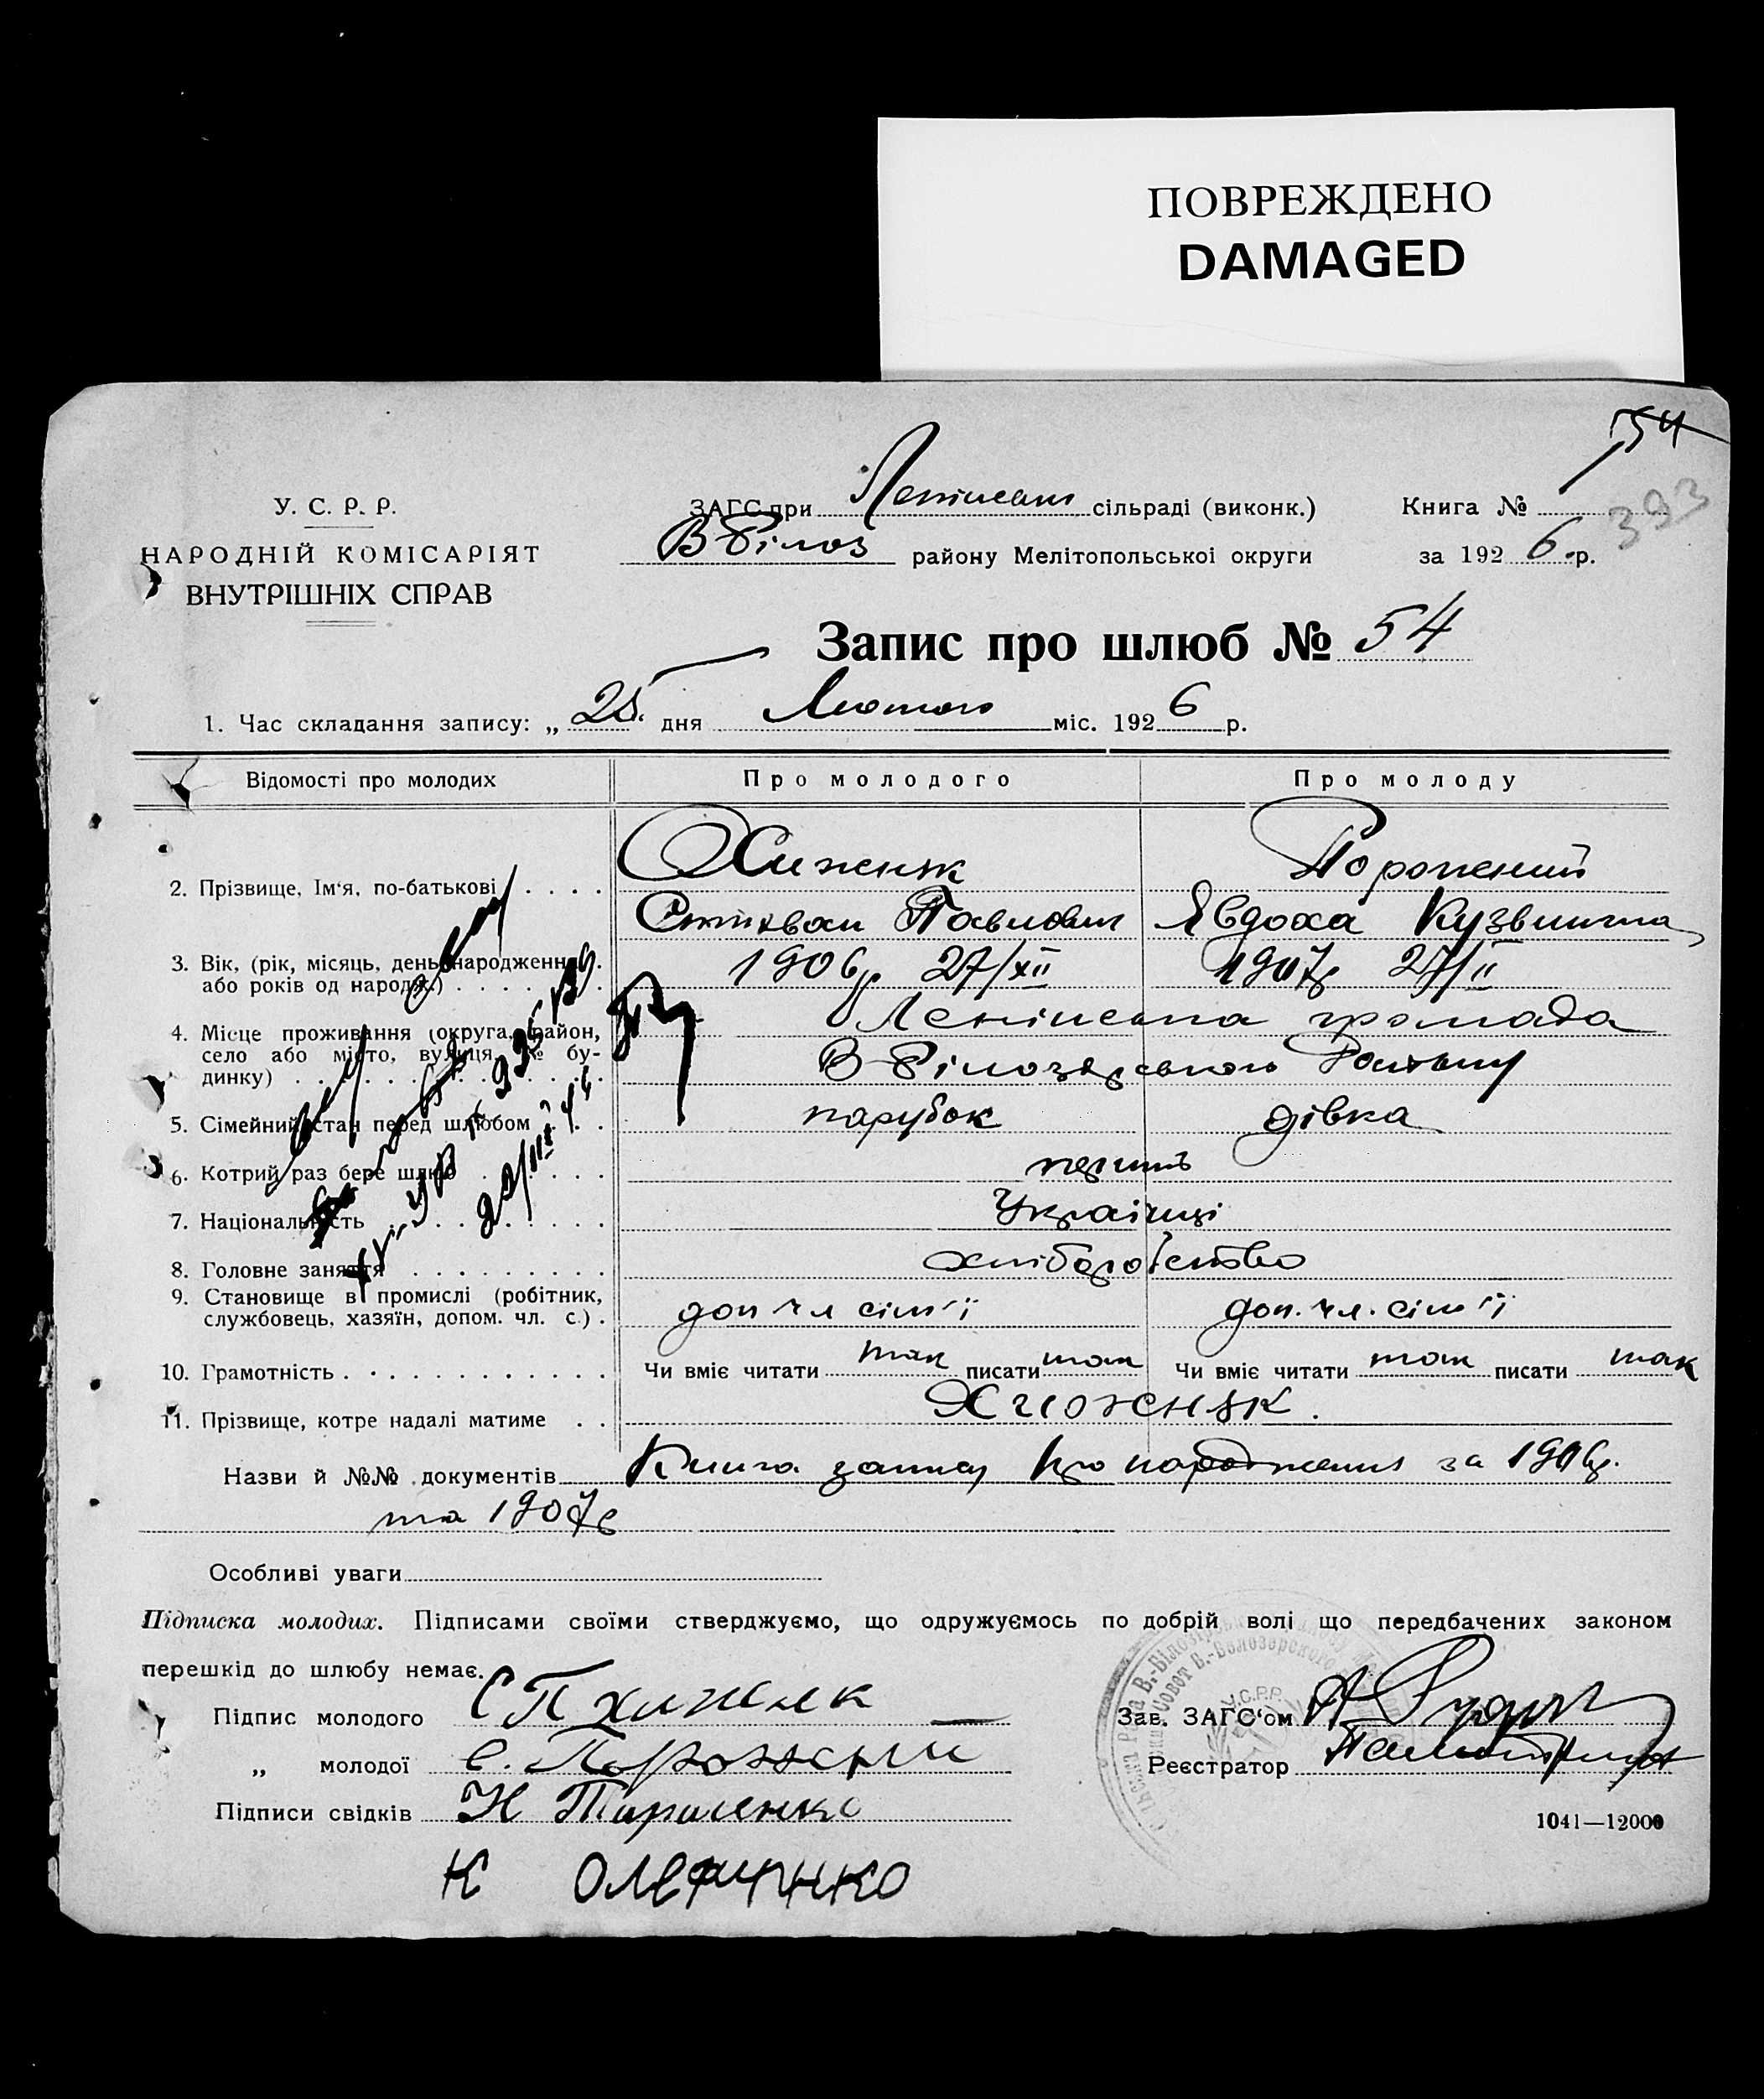 ПОВРЕЖДЕНО
DAMAGED
У. С. Р. Р.
НАРОДНІЙ КОМІСАРІЯТ
ВНУТРІШНІХ СПРАВ
ЗАГС при сільраді (виконк.)
В Білоз району Мелітопольської округи
Книга №
393
за 1926 р.
Запис про шлюб № 54
1. Час складання запису: „ 25 дня Лютого міс. 1926 р.
Відомості про молодих Про молодого Про молоду
2. Прізвище, Ім'я, по-батькові Хиженяк Порожний
Павлович Явдоха Кузьмична
3. Вік, (рік, місяць, день народження 1906р 27/XII 1907р 27/II
або років од народж.)
4. Місце проживання (округа, район, Ленінська громада
село або місто, вулиця, № бу- В-Білозерського Району
динку)
5. Сімейний стан перед шлюбом парубок дівка
6. Котрий раз бере шлюб перший
7. Національність Українці
8. Головне заняття хліборобство
9. Становище в промислі (робітник, доп чл сім'ї доп. чл. сім'ї
службовець, хазяїн, допом. чл. с.)
10. Грамотність Чи вміє читати так писати так Чи вміє читати так писати так
11. Прізвище, котре надалі матиме
Назви й №№ документів Книга запису про народження за 1906р.
та 1907р
Особливі уваги
Підписка молодих. Підписами своїми стверджуємо, що одружуємось по добрій волі що передбачених законом
перешкід до шлюбу немає.
Підпис молодого С П Хиженяк
Зав. ЗАГС'ом
„ молодої Є. Порожний
Реєстратор
Підписи свідків Н
1041—12000
К